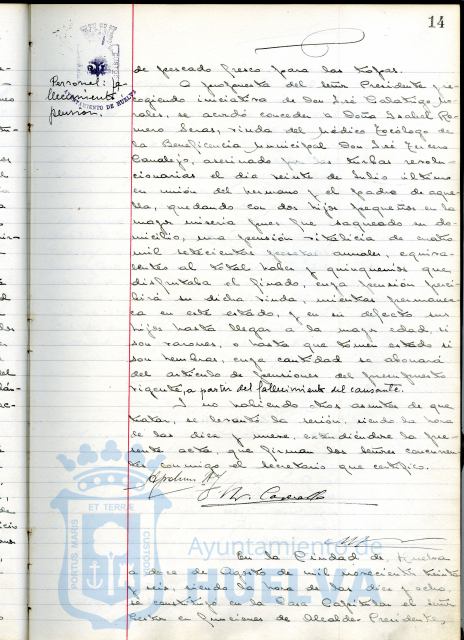 14
Personal: fa
llecimiento
pensión.
AYUNTAMIENTO DE HUELVA
de pescado fresco para las tropas.
A propuesta del señor Presidente, re-
cogiendo iniciativa de Don José Dolatiga No-
vales, se acordó conceder a Doña Isabel Ro-
mero Seras, viuda del Médico Tocólogo de
la Beneficencia Municipal Don José Tercero
Canalejo, asesinado por las turbas revolu-
cionarias el día veinte de Julio último
en unión del hermano y el padre de aque-
lla, quedando con dos hijos pequeños en la
mayor miseria pues fue saqueado su do-
micilio, una pensión vitalicia de cuatro
mil setecientas pesetas anuales, equiva-
lentes al total haber y quinquenios que
disfrutaba el finado, cuya pensión perci-
birá su dicha viuda, mientras permanez-
ca en este estado, y en su defecto sus
hijos hasta llegar a la mayor edad, si
son varones, o hasta que tomen estado si
son hembras, cuya cantidad se abonará
del artículo de pensiones del presupuesto
vigente, a partir del fallecimiento del causante.
Y no habiendo otros asuntos de que
tratar, se levantó la sesión, siendo la hora
de las diez y nueve, extendiéndose la pre-
sente acta, que firman los señores concurren-
tes conmigo el secretario que certifico.
En la Ciudad de Huelva
a doce de Agosto de mil novecientos treinta
y seis, siendo la hora de las diez y ocho,
se constituyó en la Casa Capitular el señor
Gestor en funciones de Alcalde Presidente,
ET TERRÆ
PORTUS MARIS
CUSTODIA
Ayuntamiento de
HUELVA